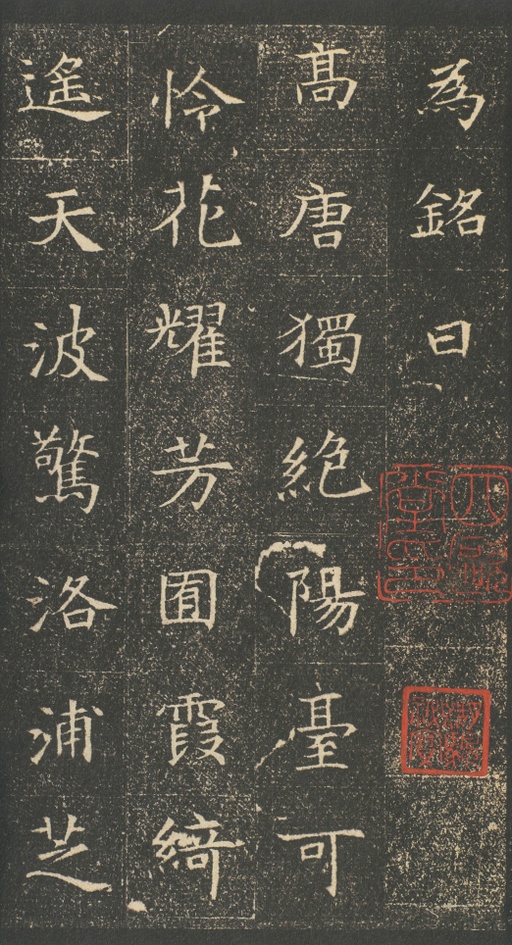 為銘曰
高唐獨絶陽臺可
怜花耀芳囿霞綺
遙天波驚洛浦芝